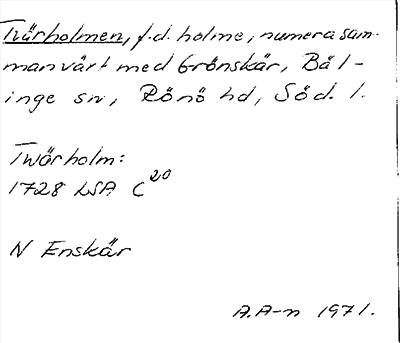 Tvärholmen, f.d. holme, numera sam-
manväxt med Grönskär, Bäl-
inge sn, Rönö hd, Söd. l.
Twärholm:
1728 LSA C20
N Enskär
A.A-n 1971.